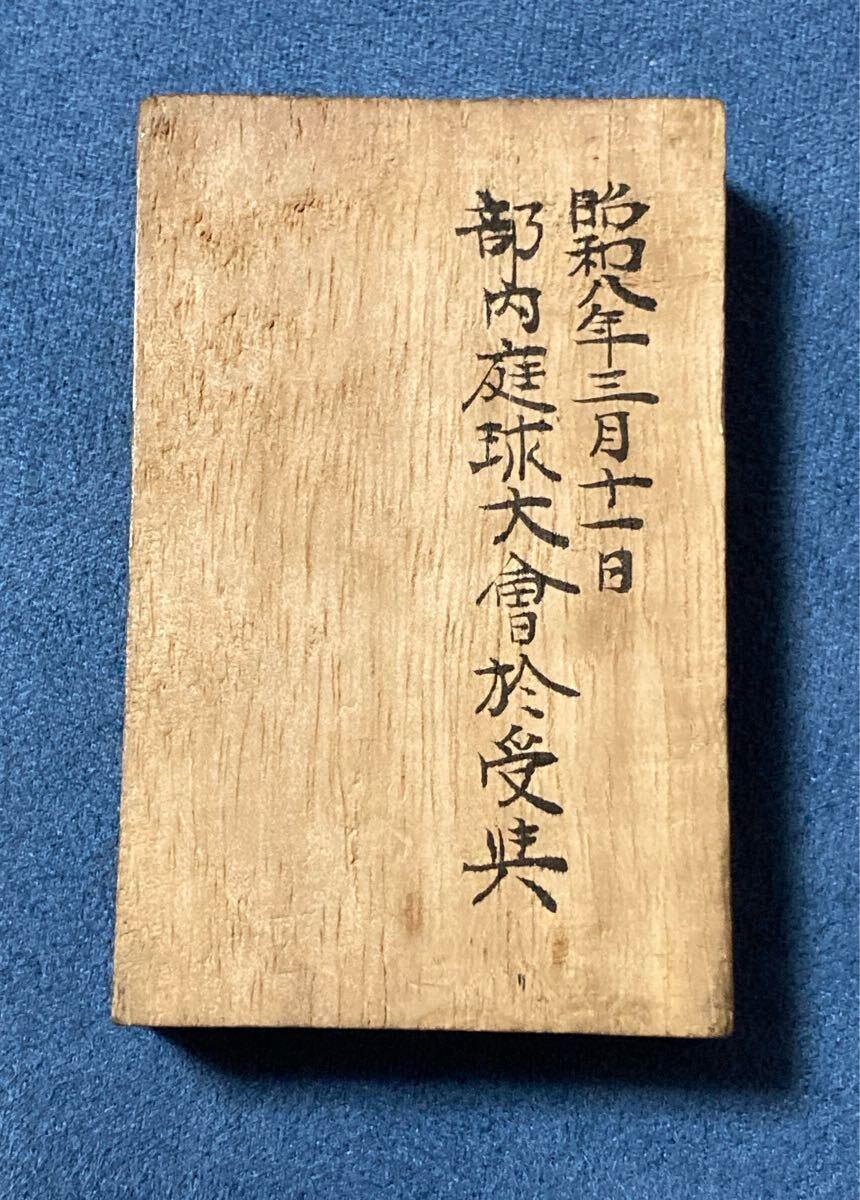 昭和八年三月十一日
部内庭球大會於受奬